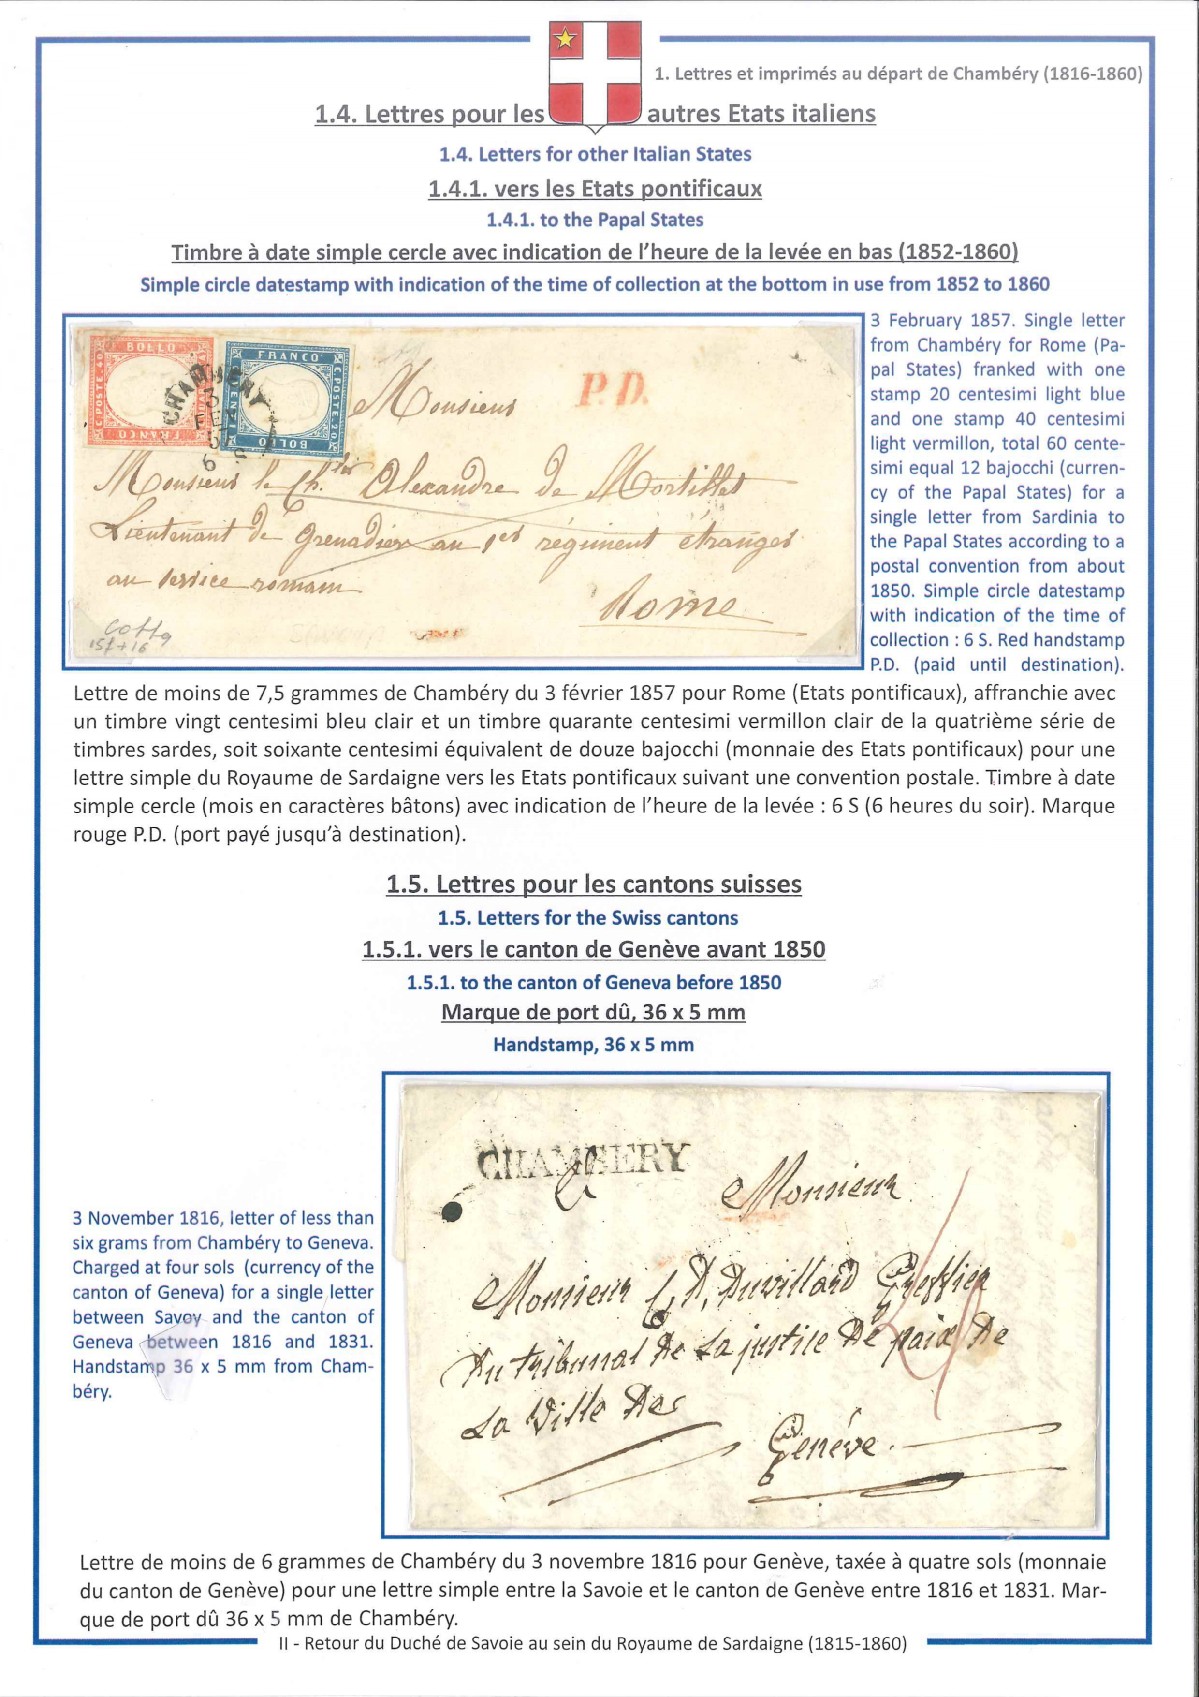 1. Lettres et imprimés au départ de Chambéry (1816-1860)
1.4. Lettres pour les autres Etats italiens
1.4. Letters for other Italian States
1.4.1. vers les Etats pontificaux
1.4.1. to the Papal States
Timbre à date simple cercle avec indication de l'heure de la levée en bas (1852-1860)
Simple circle datestamp with indication of the time of collection at the bottom in use from 1852 to 1860
BOLLO
C POSTE 40
FRANCO
FRANCO
C POSTE 20
BOLLO
CHAMBERY
3
FEV
57
6 S
P.D.
Monsieur
Monsieur le Ch.lier Alexandre de Mortillet
Lieutenant de grenadiers au 1er régiment étranger
au service romain
Rome
15f+16
3 February 1857. Single letter
from Chambéry for Rome (Pa-
pal States) franked with one
stamp 20 centesimi light blue
and one stamp 40 centesimi
light vermillon, total 60 cente-
simi equal 12 bajocchi (curren-
cy of the Papal States) for a
single letter from Sardinia to
the Papal States according to a
postal convention from about
1850. Simple circle datestamp
with indication of the time of
collection : 6 S. Red handstamp
P.D. (paid until destination).
Lettre de moins de 7,5 grammes de Chambéry du 3 février 1857 pour Rome (Etats pontificaux), affranchie avec
un timbre vingt centesimi bleu clair et un timbre quarante centesimi vermillon clair de la quatrième série de
timbres sardes, soit soixante centesimi équivalent de douze bajocchi (monnaie des Etats pontificaux) pour une
lettre simple du Royaume de Sardaigne vers les Etats pontificaux suivant une convention postale. Timbre à date
simple cercle (mois en caractères bâtons) avec indication de l'heure de la levée : 6 S (6 heures du soir). Marque
rouge P.D. (port payé jusqu'à destination).
1.5. Lettres pour les cantons suisses
1.5. Letters for the Swiss cantons
1.5.1. vers le canton de Genève avant 1850
1.5.1. to the canton of Geneva before 1850
Marque de port dû, 36 x 5 mm
Handstamp, 36 x 5 mm
CHAMBERY
Monsieur
Monsieur Duvillard Greffier
Du tribunal de La justice De paix De
La Ville De
Genéve
4
3 November 1816, letter of less than
six grams from Chambéry to Geneva.
Charged at four sols (currency of the
canton of Geneva) for a single letter
between Savoy and the canton of
Geneva between 1816 and 1831.
Handstamp 36 x 5 mm from Cham-
béry.
Lettre de moins de 6 grammes de Chambéry du 3 novembre 1816 pour Genève, taxée à quatre sols (monnaie
du canton de Genève) pour une lettre simple entre la Savoie et le canton de Genève entre 1816 et 1831. Mar-
que de port dû 36 x 5 mm de Chambéry.
II - Retour du Duché de Savoie au sein du Royaume de Sardaigne (1815-1860)